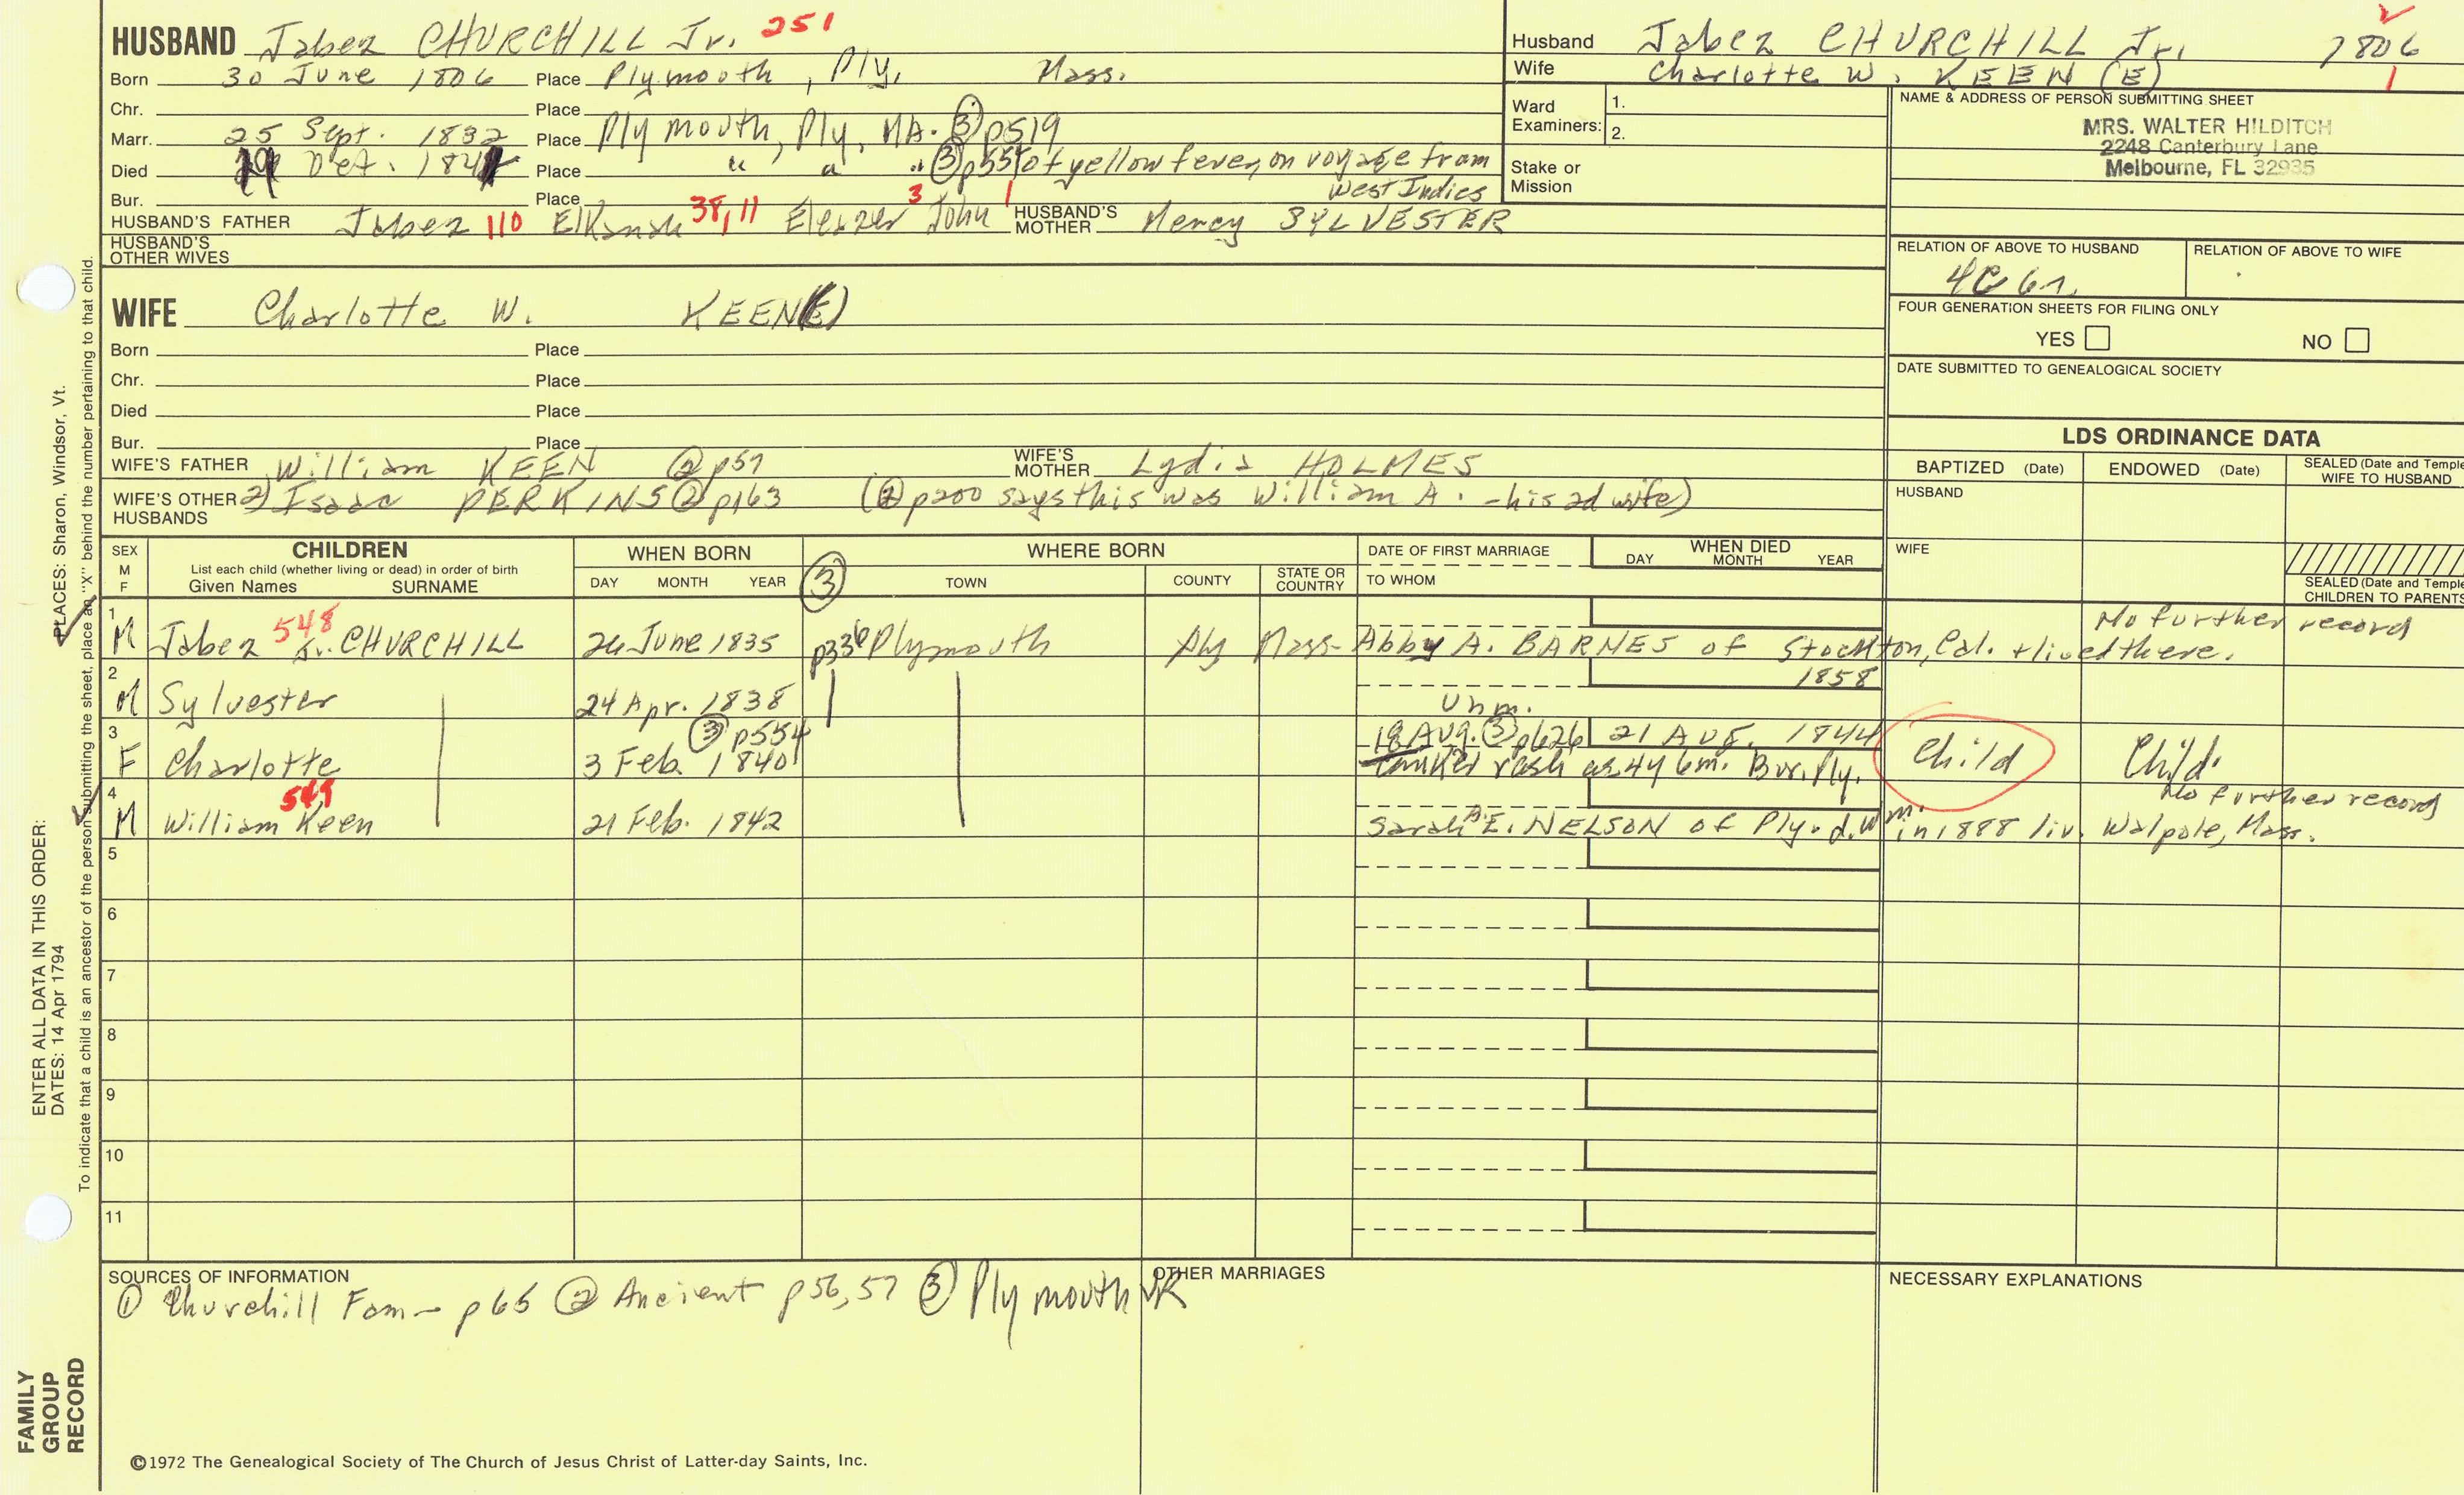 HUSBAND Jabez CHURCHILL Jr. 251
Born 30 June 1806 Place Plymouth, Ply, Mass.
Chr. Place
Marr. 25 Sept. 1832 Place Plymouth, Ply, MA. ③ p519
Died Oct. 184 Place " " " ③ p551 of yellow fever, on voyage from
West Indies
Bur. Place
HUSBAND'S FATHER Jabez 110 Elkanah 38, 11 Eleazer 3 John 1 HUSBAND'S MOTHER Mercy SYLVESTER
HUSBAND'S OTHER WIVES
Husband Jabez CHURCHILL Jr. 1806
Wife Charlotte W. KEEN (E) 1
Ward Examiners: 1.
2.
Stake or Mission
NAME & ADDRESS OF PERSON SUBMITTING SHEET
MRS. WALTER HILDITCH
2248 Canterbury Lane
Melbourne, FL 32935
RELATION OF ABOVE TO HUSBAND RELATION OF ABOVE TO WIFE
4C 6r.
FOUR GENERATION SHEETS FOR FILING ONLY
YES NO
DATE SUBMITTED TO GENEALOGICAL SOCIETY
WIFE Charlotte W. KEEN(E)
Born Place
Chr. Place
Died Place
Bur. Place
WIFE'S FATHER William KEEN ② p57 WIFE'S MOTHER Lydia HOLMES
WIFE'S OTHER HUSBANDS 2) Isaac PERKINS ② p163 (② p200 says this was William A. - his 2d wife)
LDS ORDINANCE DATA
BAPTIZED (Date) ENDOWED (Date) SEALED (Date and Temple
WIFE TO HUSBAND
HUSBAND
WIFE
SEALED (Date and Temple
CHILDREN TO PARENTS
SEX M F CHILDREN
List each child (whether living or dead) in order of birth
Given Names SURNAME
WHEN BORN
DAY MONTH YEAR
③
WHERE BORN
TOWN COUNTY STATE OR COUNTRY
DATE OF FIRST MARRIAGE
TO WHOM
WHEN DIED
DAY MONTH YEAR
No further record
1 M Jabez 548 Jr. CHURCHILL 26 June 1835 p336 Plymouth Ply Mass- Abby A. BARNES of Stockton, Cal. + lived there.
1858
2 M Sylvester 24 Apr. 1838 Unm.
③ p554 18 Aug. ③ p626 21 Aug. 1844
3 F Charlotte 3 Feb. 1840 Canker rash ae 4y 6m. Bur. Ply. Child Child.
549 No further record
4 M William Keen 21 Feb. 1842 Sarah A E. NELSON of Ply. d. Wm. in 1888 liv. Walpole, Mass.
5
6
7
8
9
10
11
SOURCES OF INFORMATION
① Churchill Fam - p65 ② Ancient p56, 57 ③ Plymouth VR
OTHER MARRIAGES
NECESSARY EXPLANATIONS
©1972 The Genealogical Society of The Church of Jesus Christ of Latter-day Saints, Inc.
FAMILY GROUP RECORD
ENTER ALL DATA IN THIS ORDER:
DATES: 14 Apr 1794
PLACES: Sharon, Windsor, Vt.
To indicate that a child is an ancestor of the person submitting the sheet, place an "X" behind the number pertaining to that child.